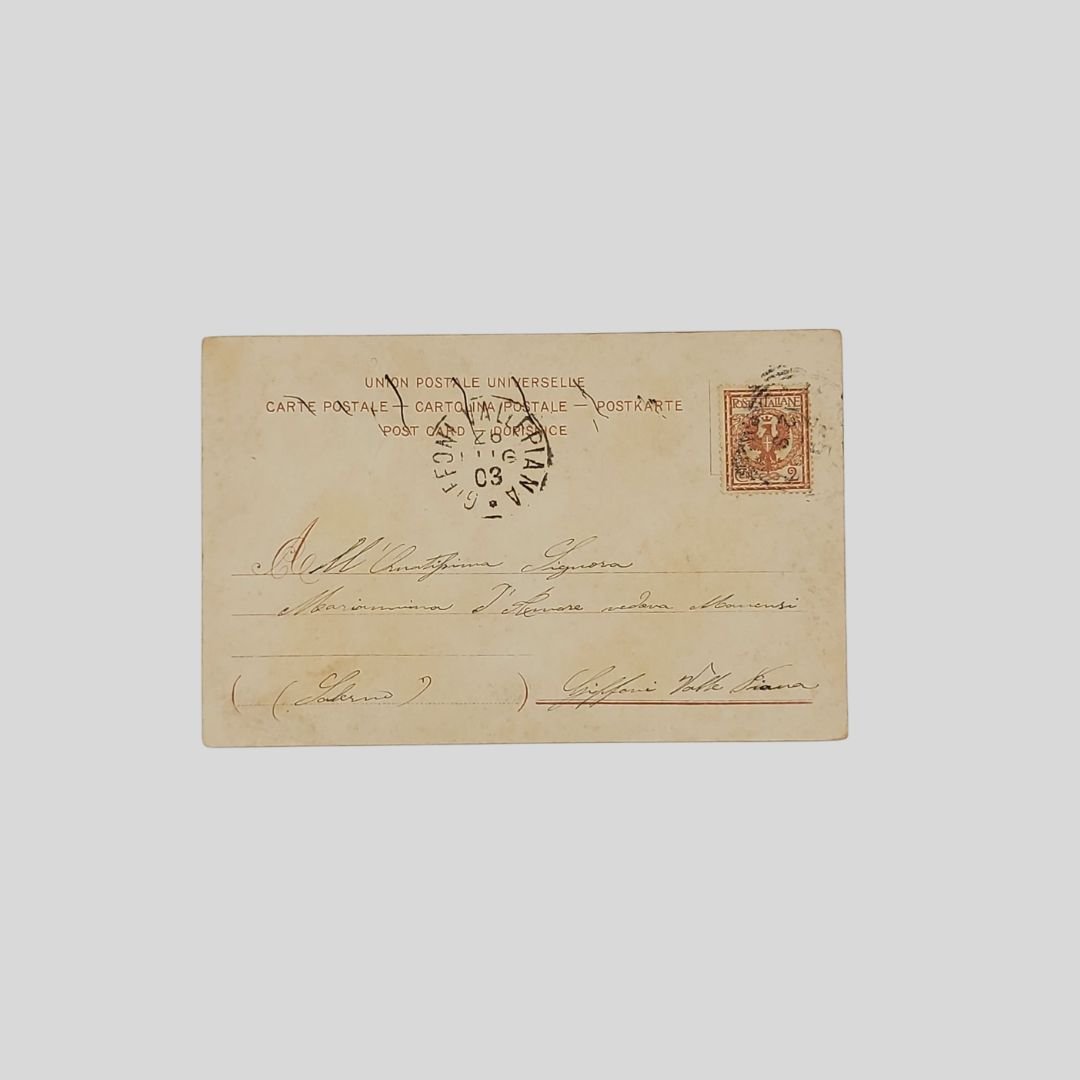 UNION POSTALE UNIVERSELLE
CARTE POSTALE — CARTOLINA POSTALE — POSTKARTE
POST CARD — DOPISNICE
GIFFONI VALLE PIANA
28
03
POSTE ITALIANE
2
All' Signora
Mariannina D'Amore vedova
(Salerno) Giffoni Valle Piana